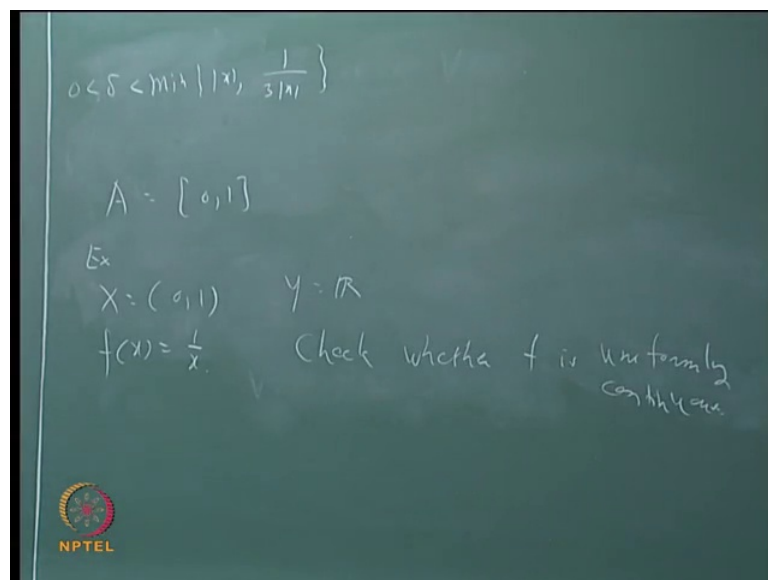 0 < δ < min { |x|, 1/3|x| }
A = [0,1]
Ex
X = (0,1) Y = ℝ
f(x) = 1/x. Check whether f is uniformly
continuous.
NPTEL